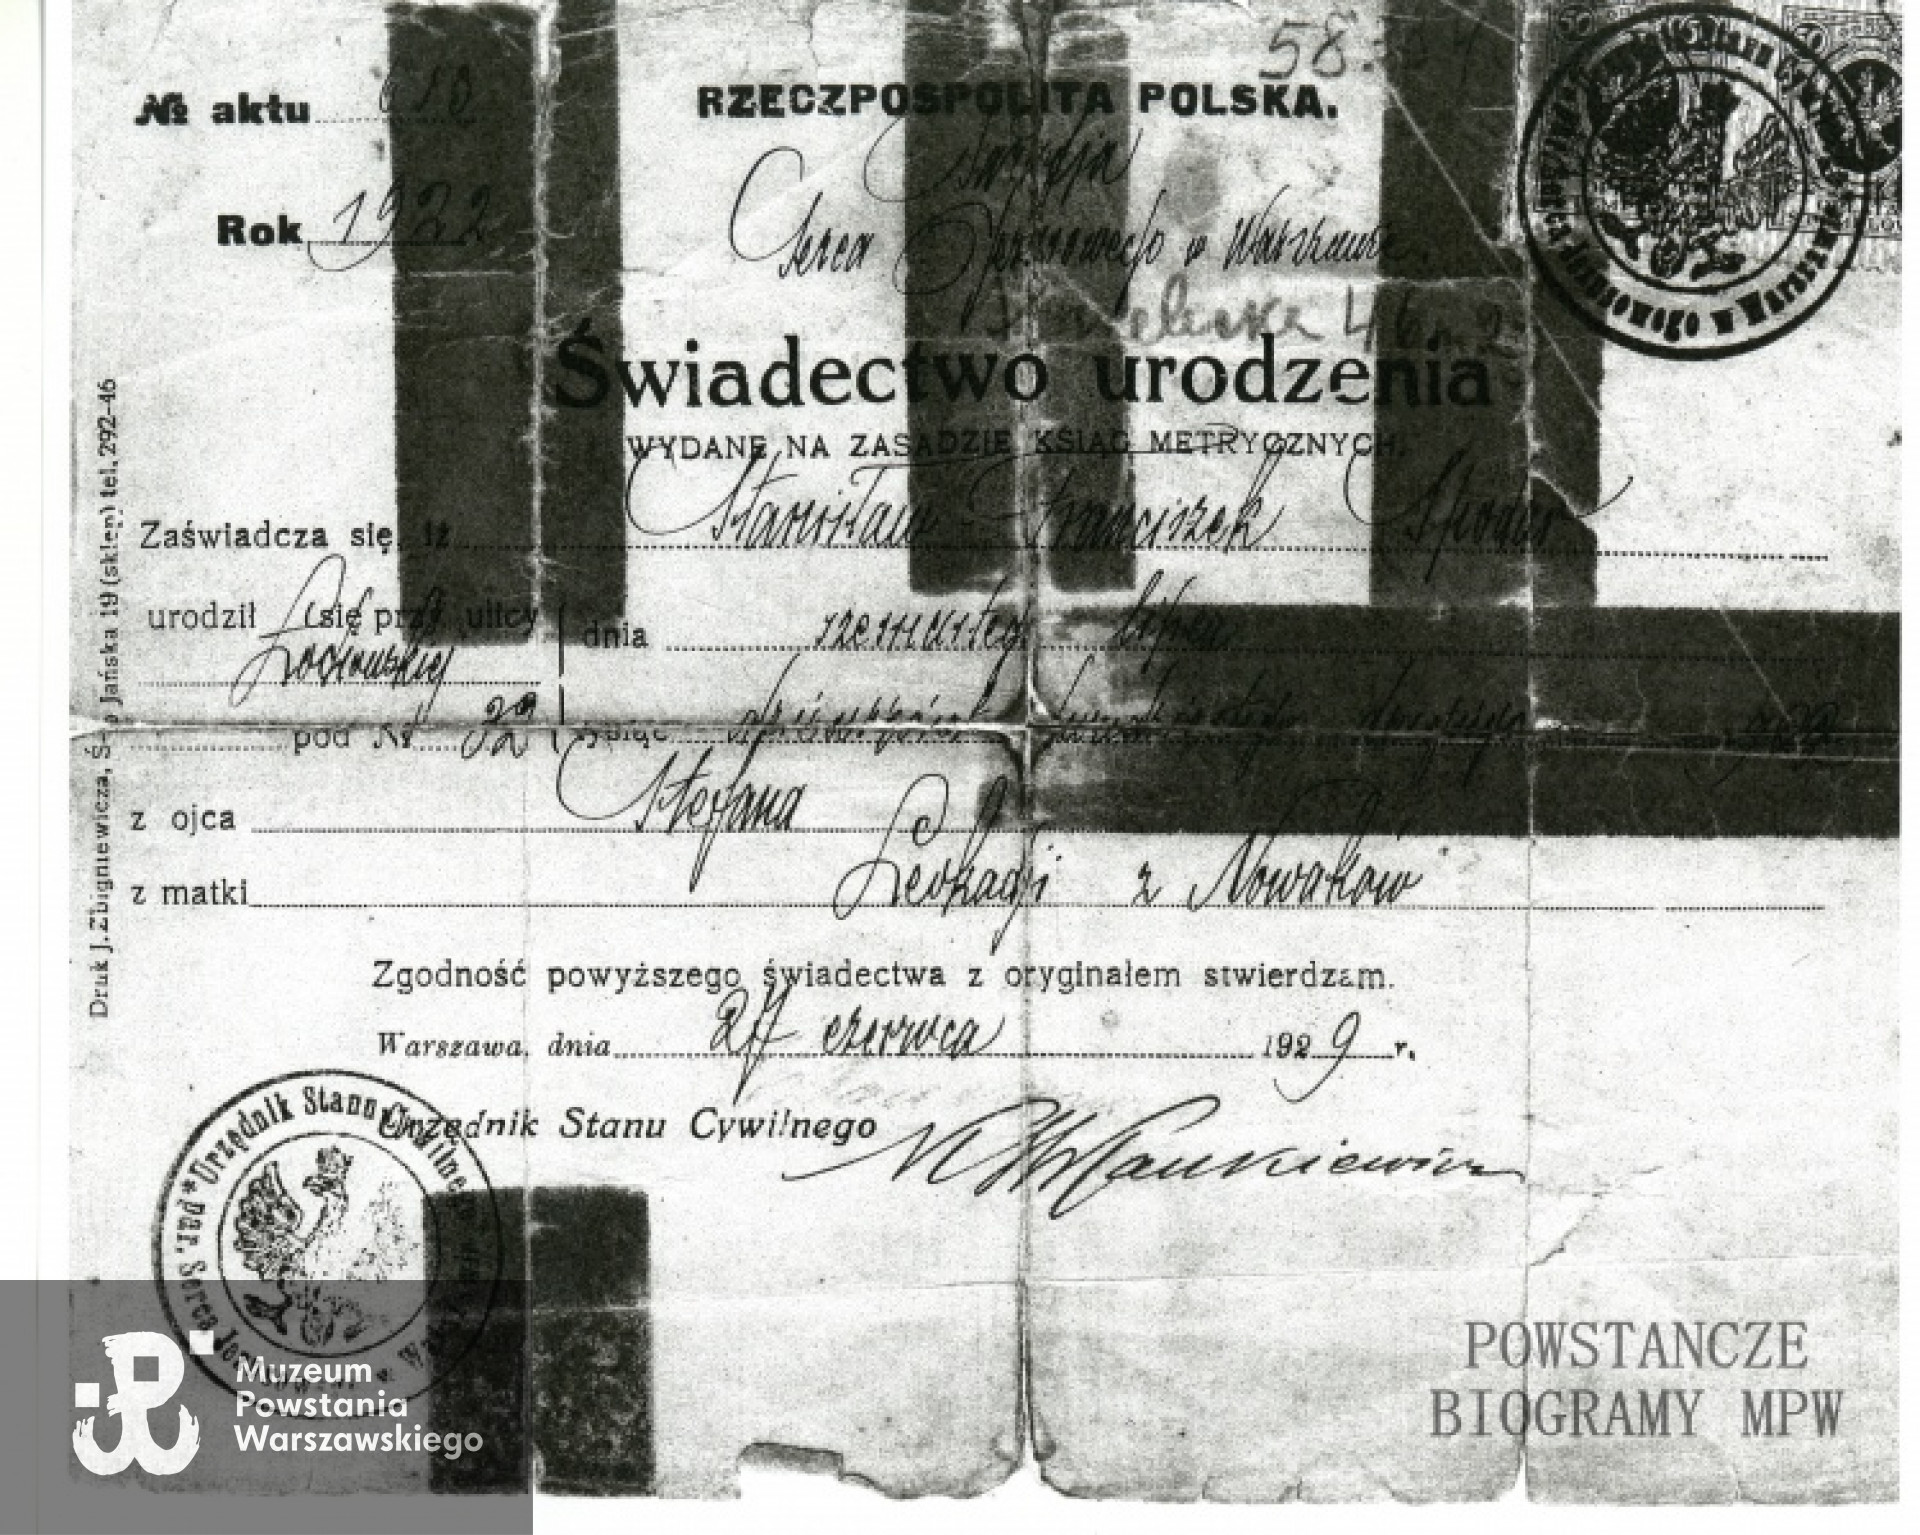 № aktu 610
58
RZECZPOSPOLITA POLSKA.
Rok 1922
Parafja
Serca Jezusowego w Warszawie.
46 m. 2
Świadectwo urodzenia
WYDANE NA ZASADZIE KSIĄG METRYCZNYCH.
Zaświadcza się, iż Stanisław Franciszek
urodził się przy ulicy
dnia szesnastego lipca
pod № 32
tysiąc dziewięćset dwudziestego drugiego 1922
z ojca Stefana
z matki Leokadji z Nowaków
Zgodność powyższego świadectwa z oryginałem stwierdzam.
Warszawa, dnia 27 czerwca 1929 r.
Urzędnik Stanu Cywilnego
Druk J. Zbigniewicza, Ś-to Jańska 19 (sklep) tel. 292-46
Serca Jezusowego w Warszawie
Urzędnik Stanu Cywilnego
par. Serca Jezusowego w
Muzeum
Powstania
Warszawskiego
POWSTAŃCZE
BIOGRAMY MPW